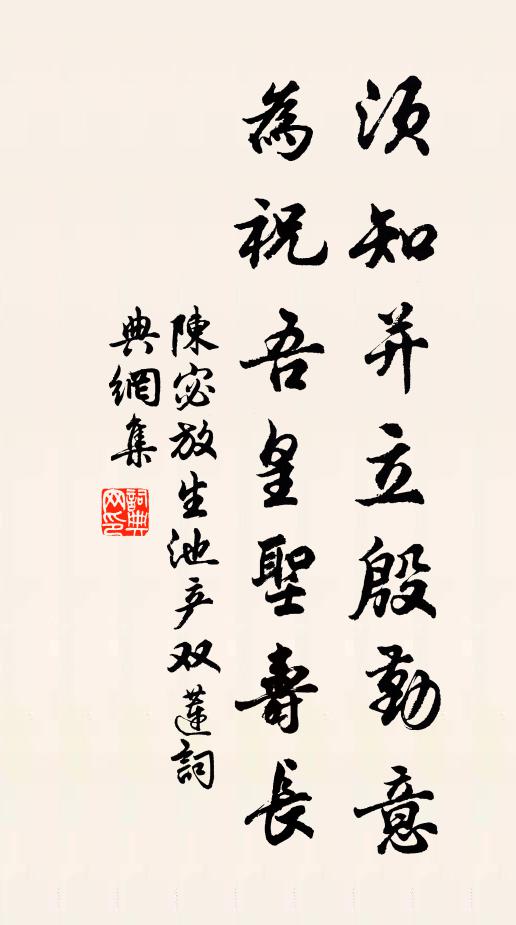 须知并立殷勤意
為祝吾皇聖壽長
陳宓放生池产双蓮詞
典網集
詞典网印